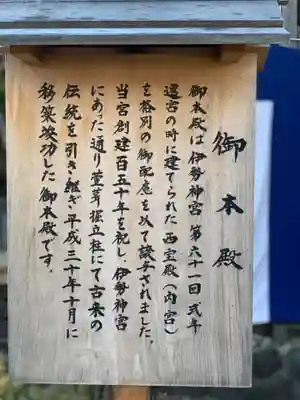 御本殿
御本殿は伊勢神宮第六十一回式年
遷宮の時に建てられた西宝殿(内宮)
を格別の御配慮を以て譲与されました。
当宮創建百五十年を祝し、伊勢神宮
にあった通り萱葺掘立柱にて古来の
伝統を引き継ぎ平成三十年十月に
移築竣功した御本殿です。